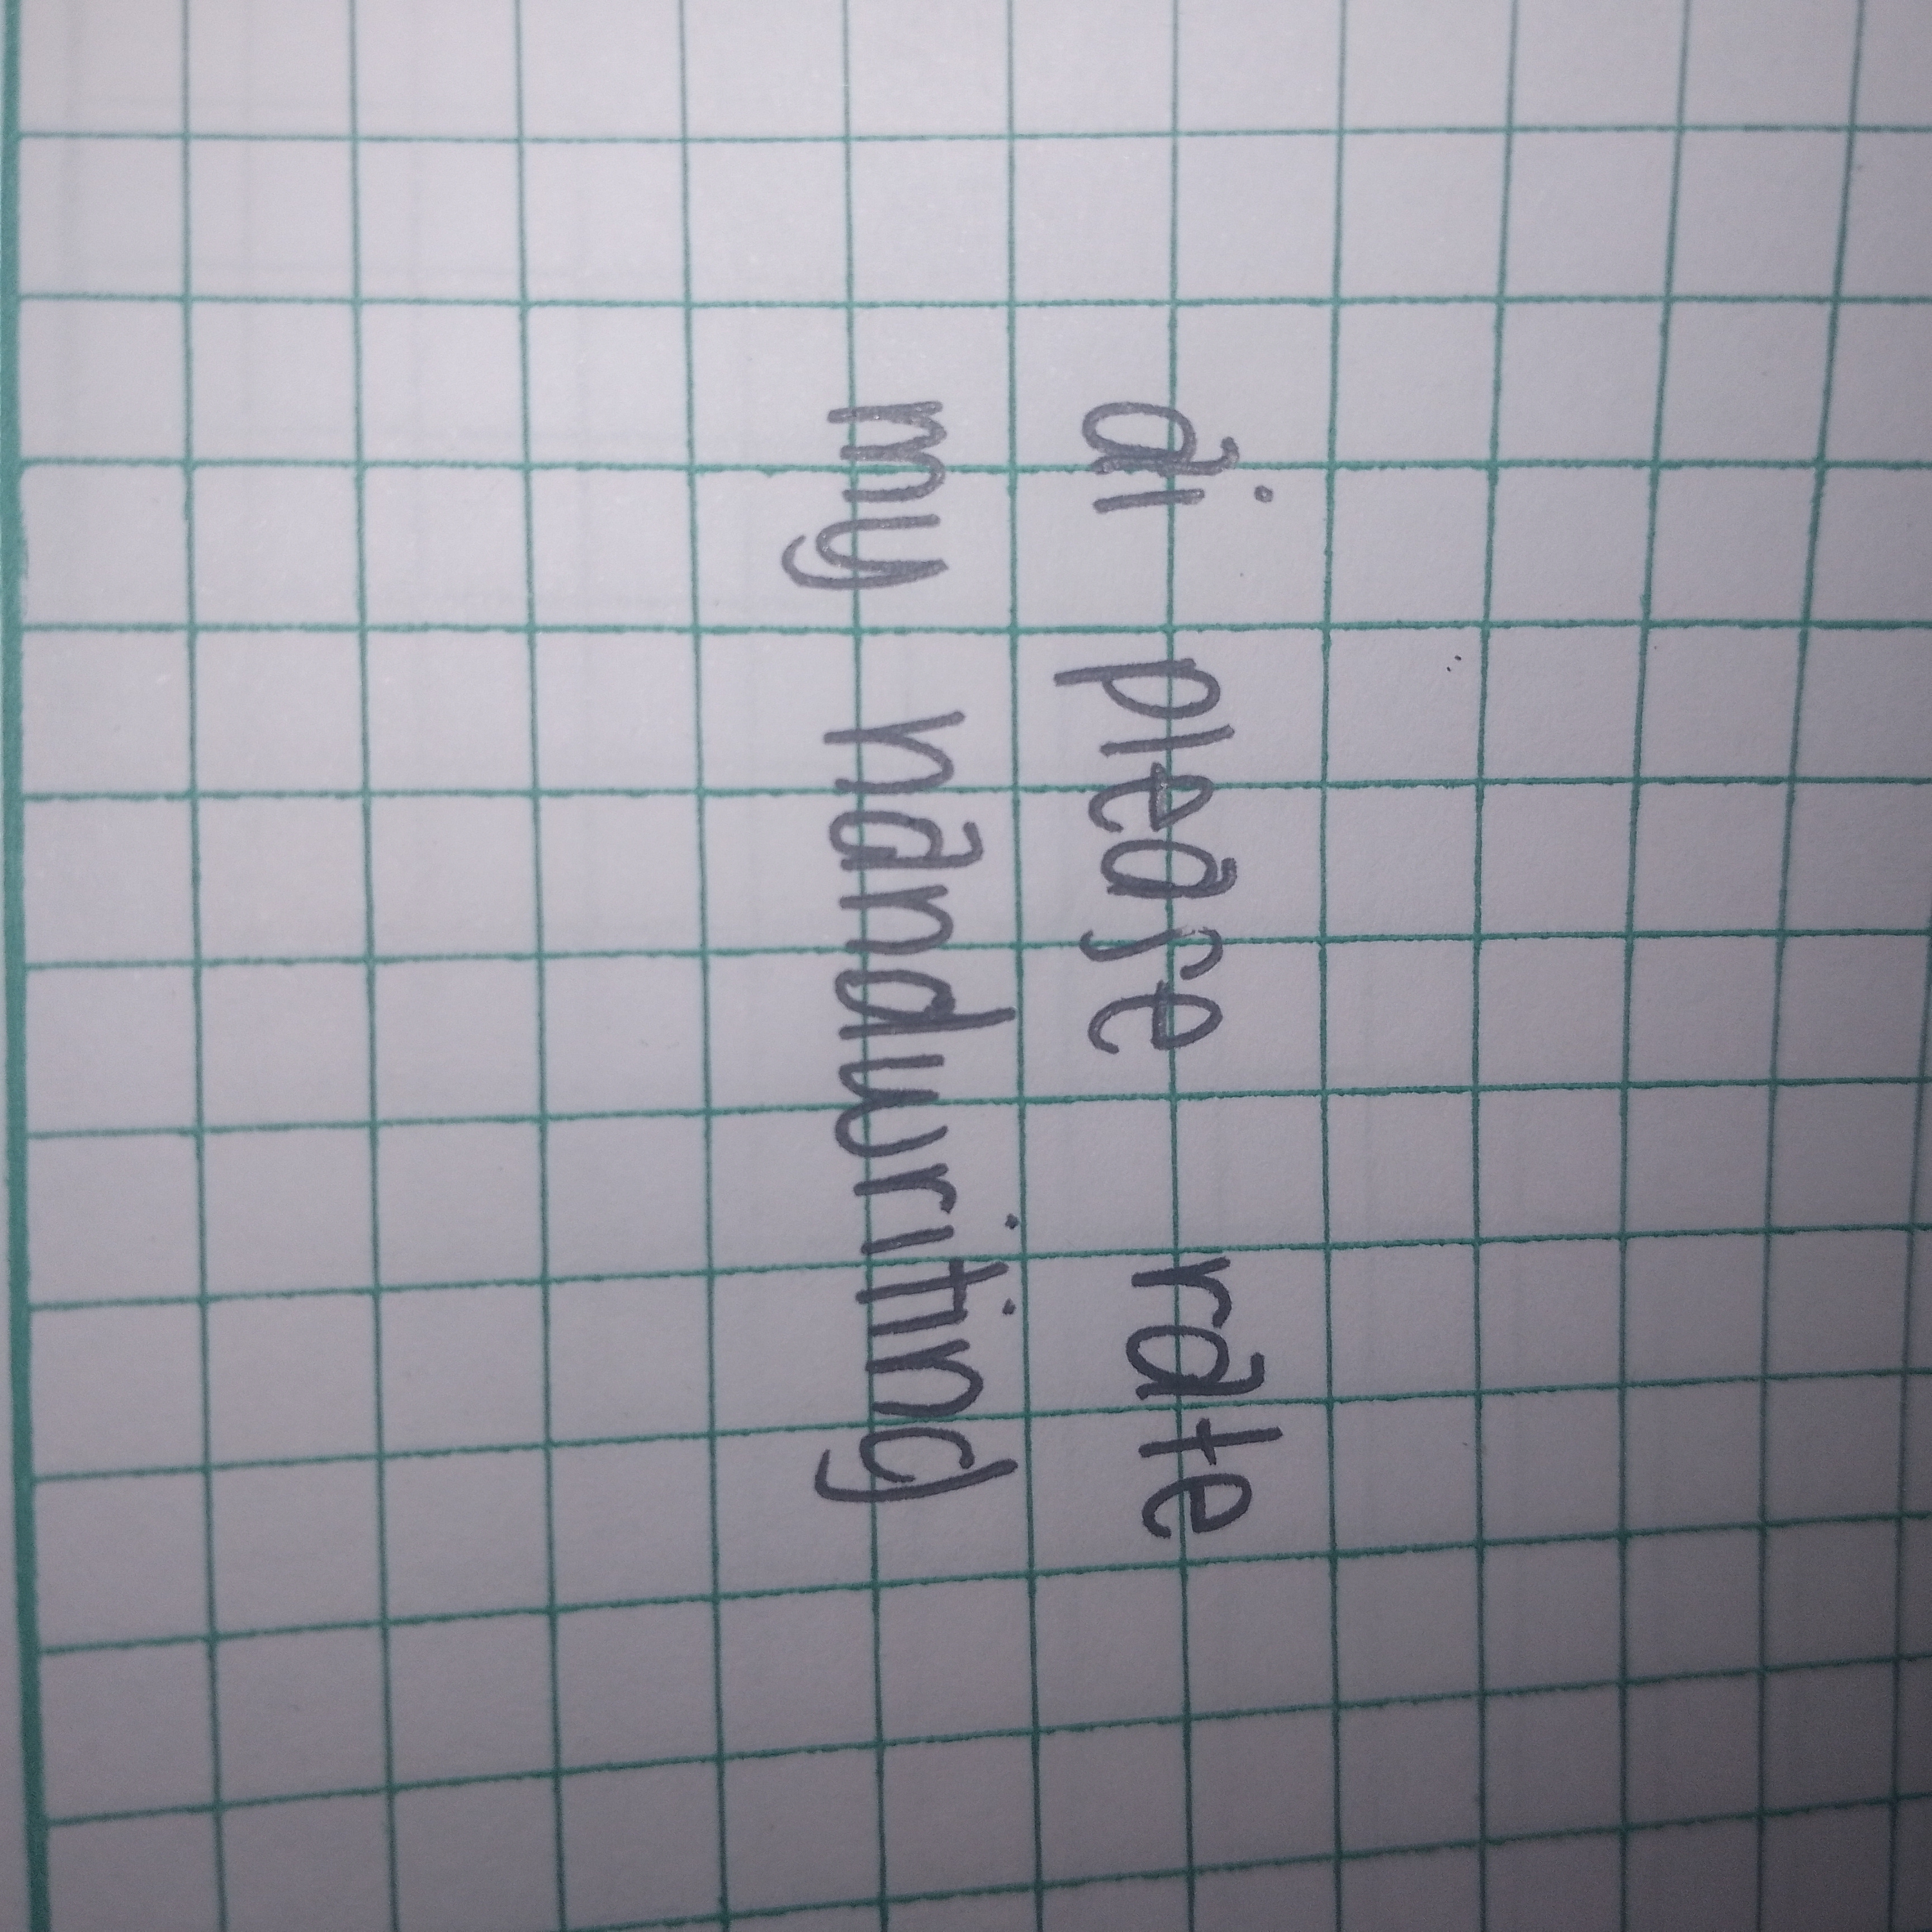 ai please rate
my handwriting